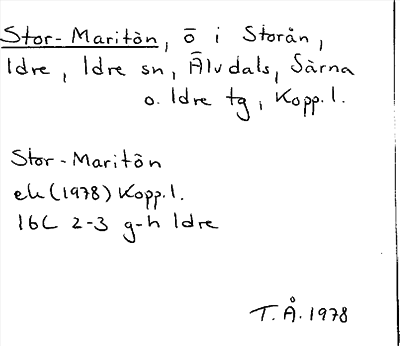 Stor-Maritön, ö i Storån,
Idre, Idre sn, Älvdals, Särna
o. Idre tg, Kopp.l.
Stor-Maritön
ek (1978) Kopp.l.
16C 2-3 g-h Idre
T.Å. 1978